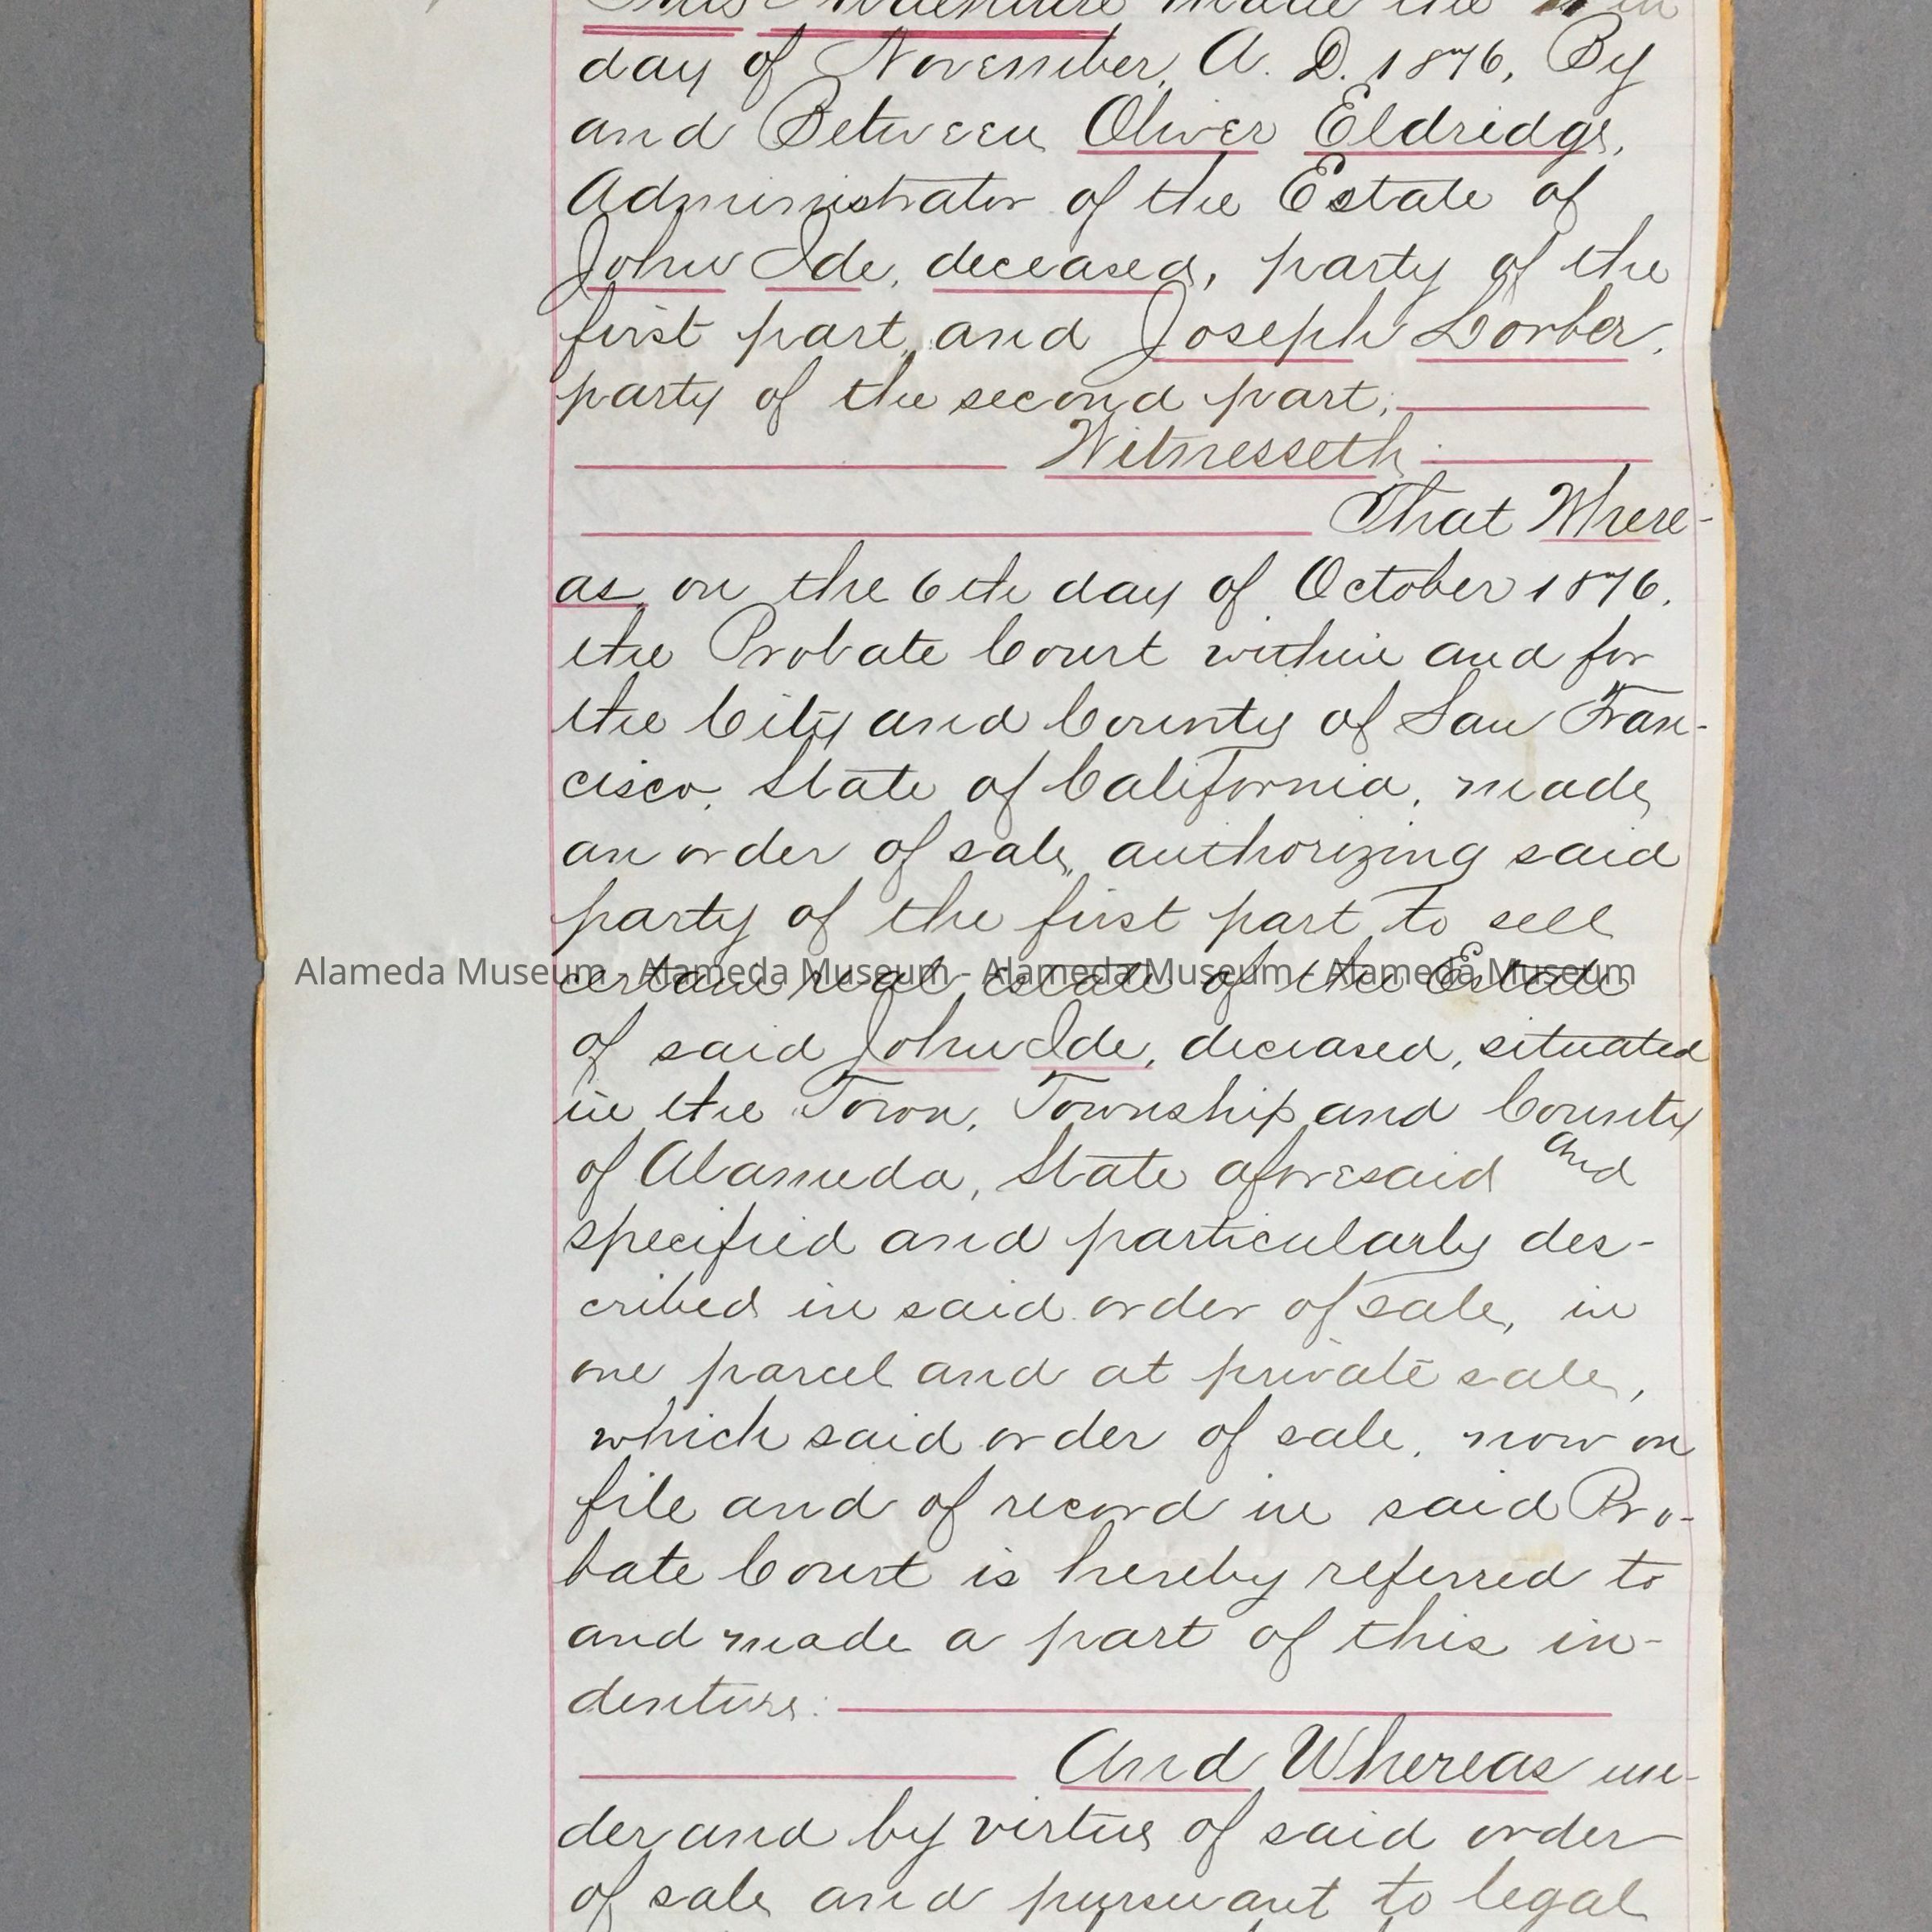 This Indenture made the
day of November, A. D. 1876, By
and Between Oliver Eldridge,
Administrator of the Estate of
John Ide, deceased, party of the
first part, and Joseph Lorber,
party of the second part;
Witnesseth
That Where-
as, on the 6th day of October 1876,
the Probate Court within and for
the City and County of San Fran-
cisco, State of California, made
an order of sale, authorizing said
party of the first part, to sell
certain real estate of the Estate
Alameda Museum - Alameda Museum - Alameda Museum - Alameda Museum
of said John Ide, deceased, situated
in the Town, Township and County
of Alameda, State aforesaid and
specified and particularly des-
cribed in said order of sale, in
one parcel and at private sale,
which said order of sale, now on
file and of record in said Pro-
bate Court is hereby referred to
and made a part of this in-
denture:
And Whereas un-
der and by virtue of said order
of sale and pursuant to legal